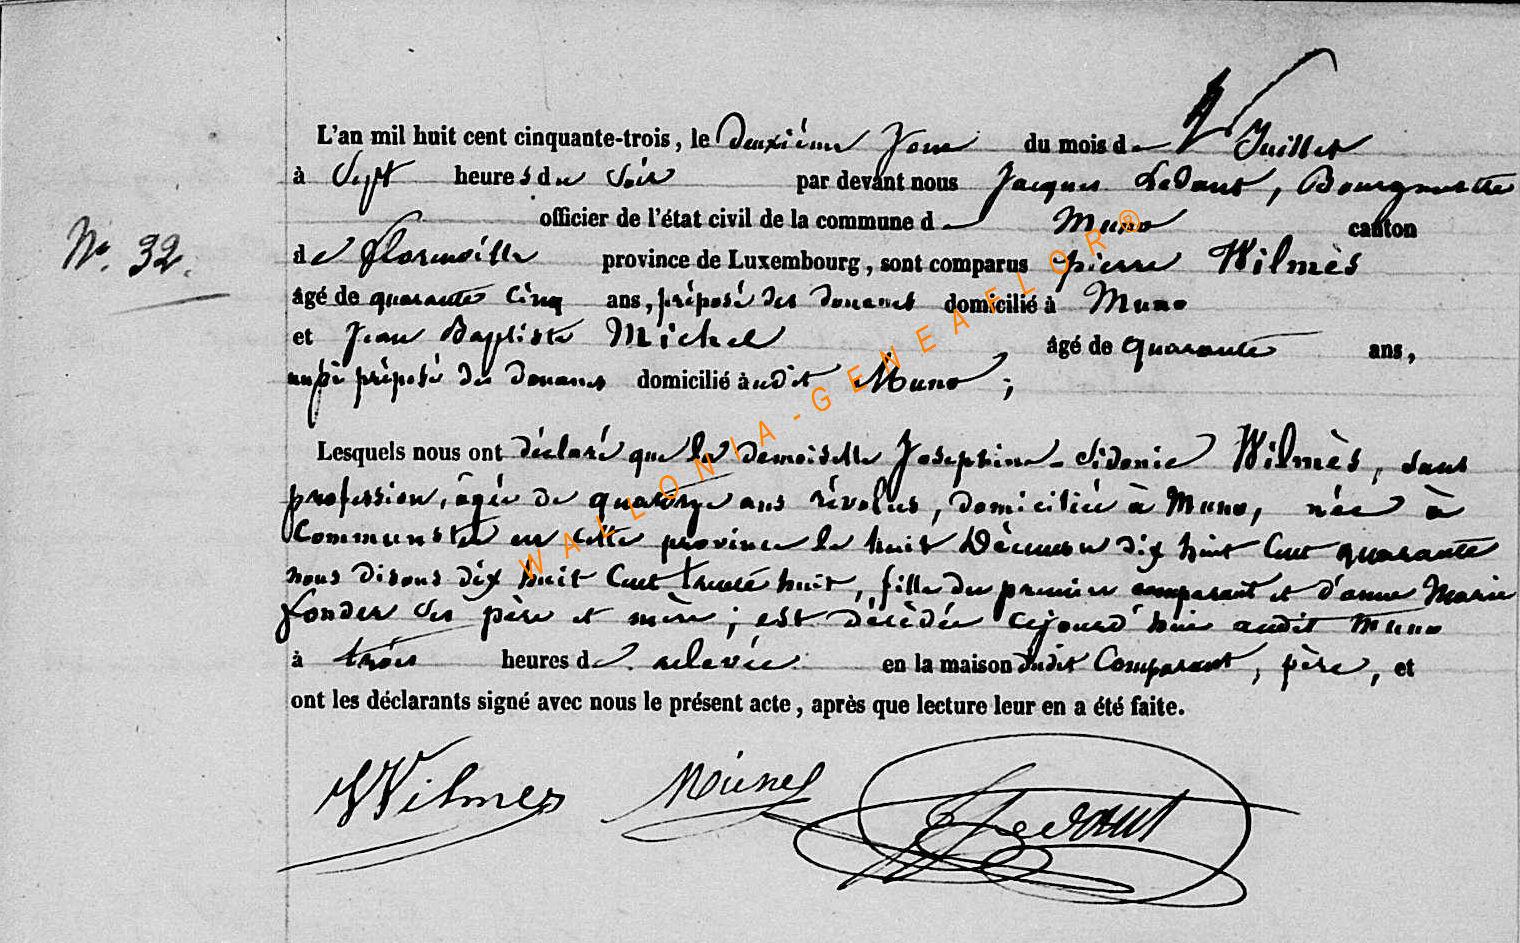 L'an mil huit cent cinquante-trois, le deuxième jour du mois de Juillet
à Sept heures du soir par devant nous Jacques Ledant, Bourgmestre
officier de l'état civil de la commune de Muno canton
N°. 32.
de florenville province de Luxembourg, sont comparus pierre Wilmès
âgé de quarante cinq ans, préposé des douanes domicilié à Muno
et Jean Baptiste Michel âgé de quarante ans,
aussi préposé des douanes domicilié audit Muno;
Lesquels nous ont déclaré que la demoiselle Josephine-Sidonie Wilmès, sans
profession, âgée de quatorze ans révolus, domiciliée à Muno, née à
en cette province le huit Décembre dix huit Cent quarante
nous disons dix huit Cent trente huit, fille du premier comparant et d'anne Marie
ses père et mère; est décédée cejourd'hui audit Muno
à trois heures de relevée en la maison dudit Comparant, père, et
ont les déclarants signé avec nous le présent acte, après que lecture leur en a été faite.
Wilmes Ledant
WALLONIA-GENEAFLOR®